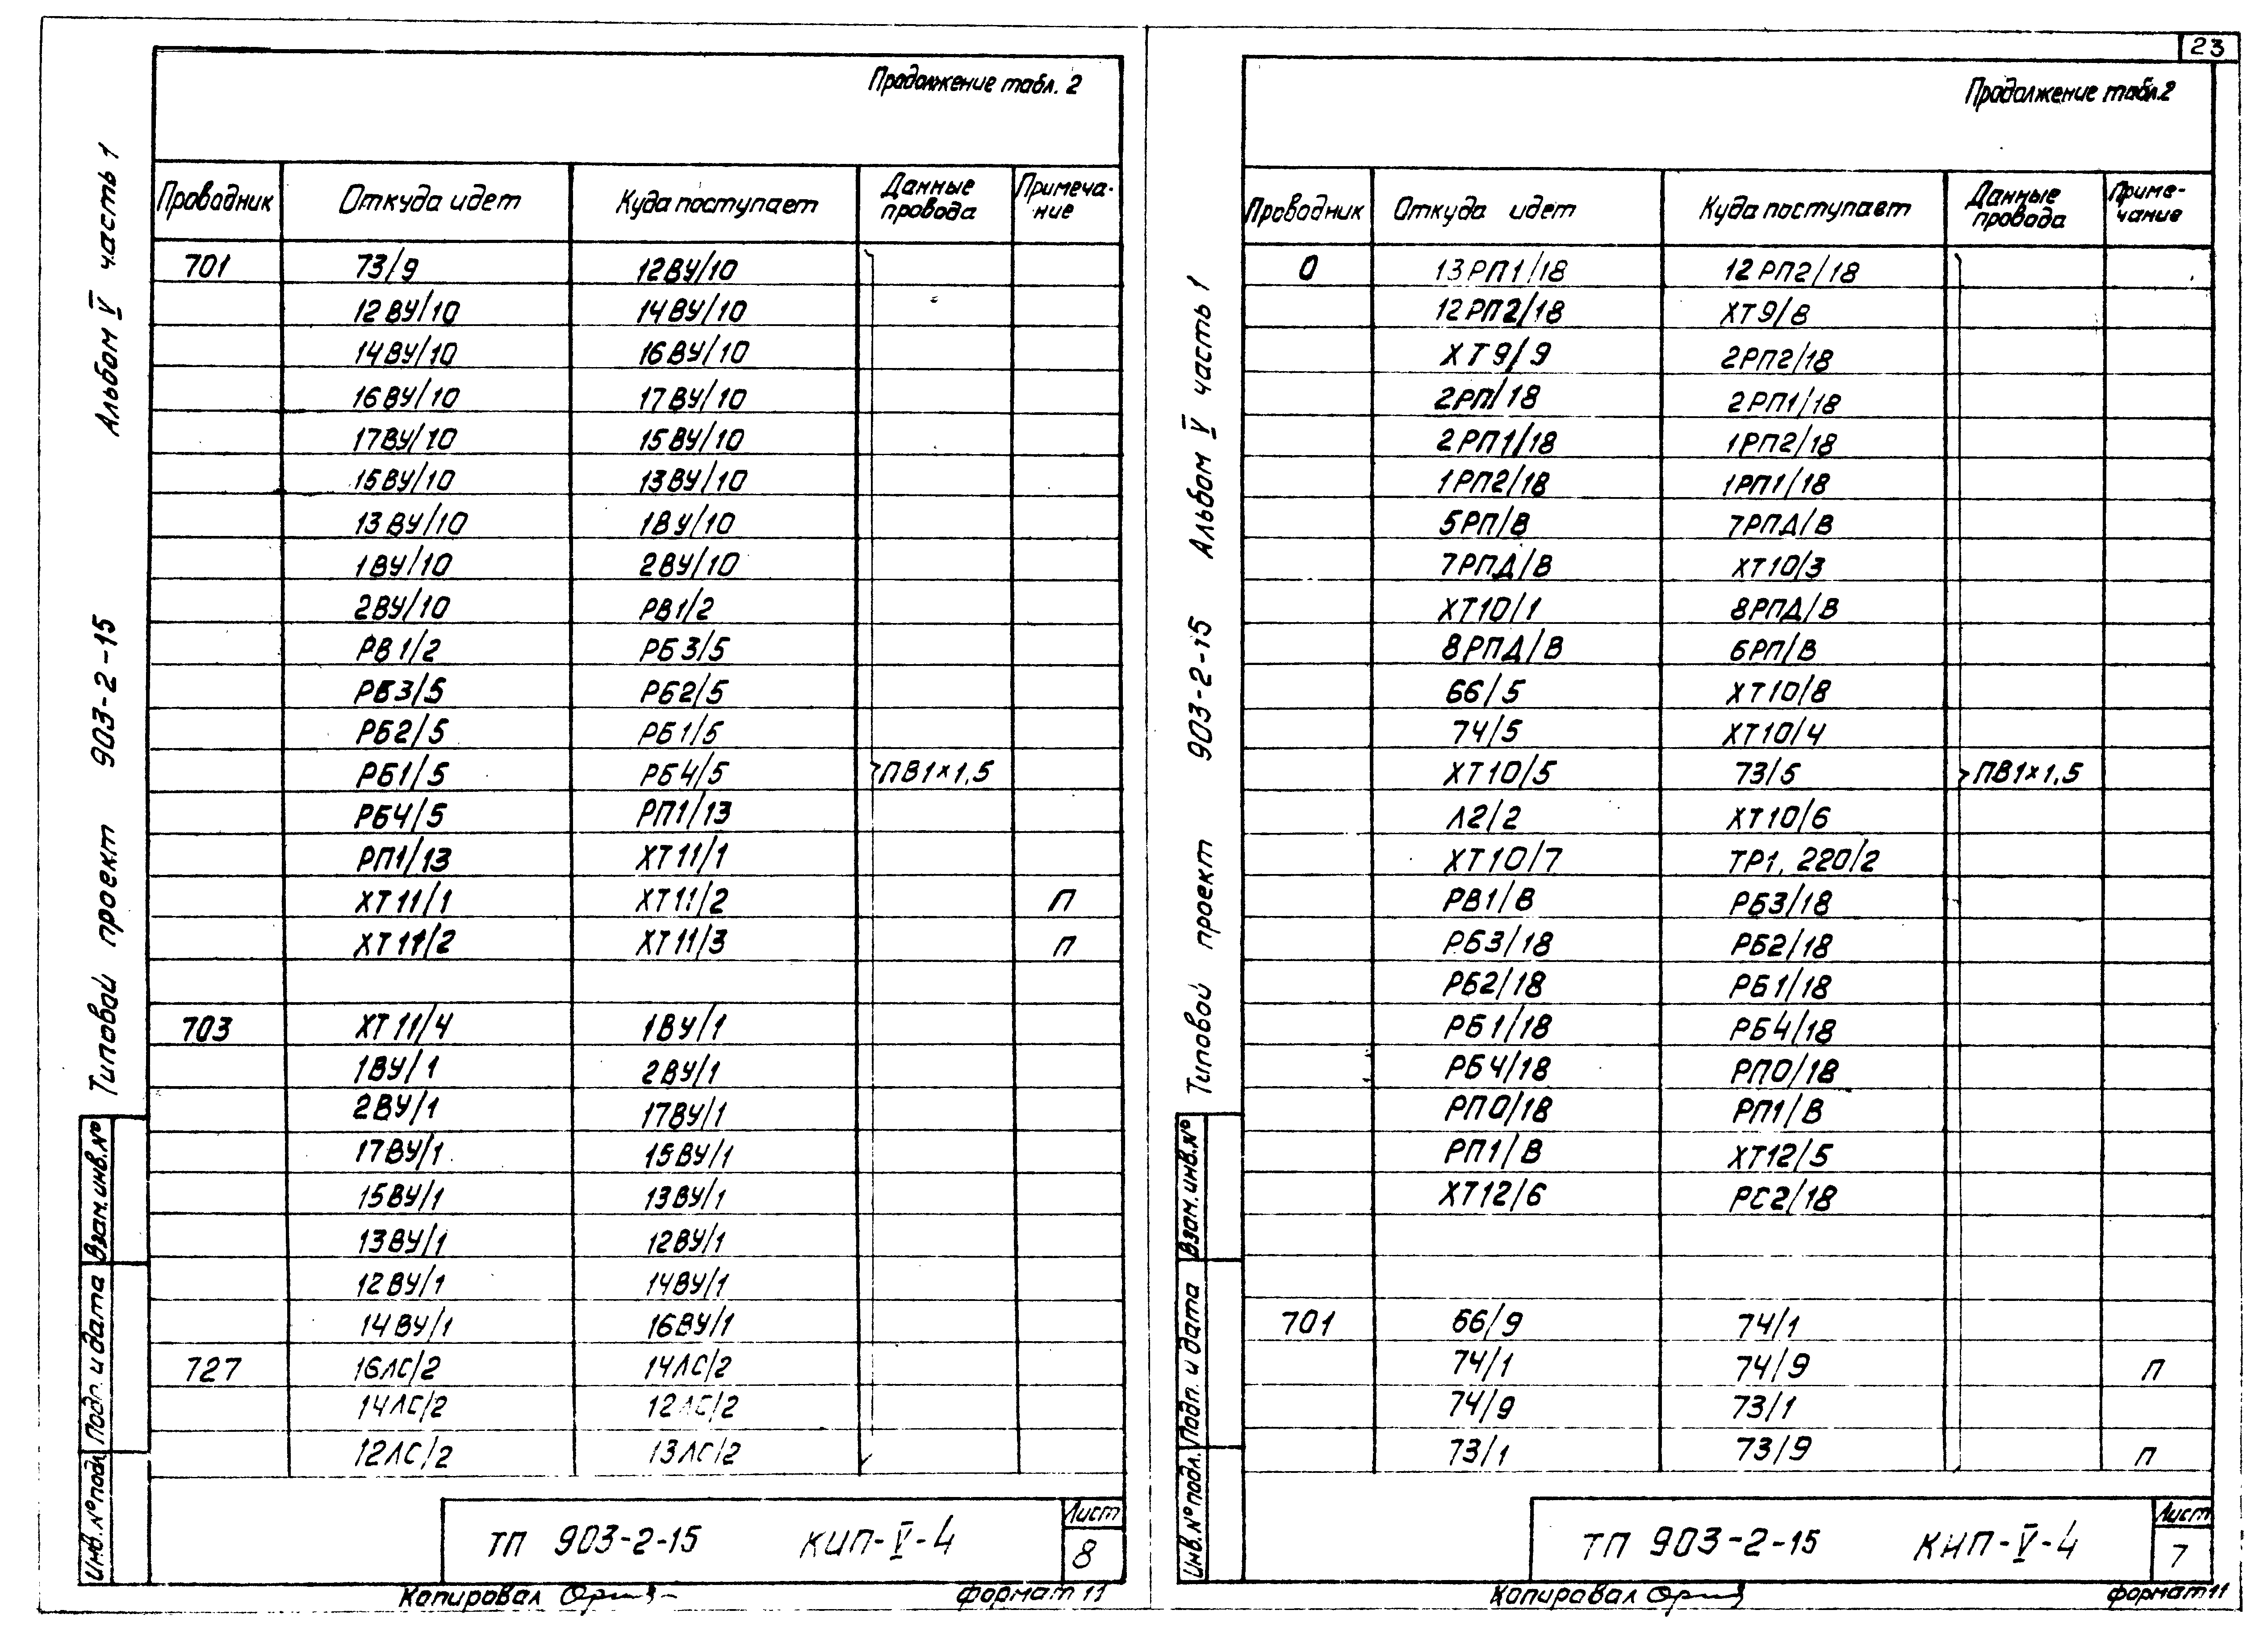 23
Продолжение табл. 2
Проводник Откуда идет Куда поступает Данные провода Примеча-ние
701 73/9 12ВУ/10
12ВУ/10 14ВУ/10
14ВУ/10 16ВУ/10
16ВУ/10 17ВУ/10
17ВУ/10 15ВУ/10
15ВУ/10 13ВУ/10
13ВУ/10 1ВУ/10
1ВУ/10 2ВУ/10
2ВУ/10 РВ1/2
РВ1/2 РБ3/5
РБ3/5 РБ2/5
РБ2/5 РБ1/5
РБ1/5 РБ4/5 ПВ1×1,5
РБ4/5 РП1/13
РП1/13 ХТ11/1
ХТ11/1 ХТ11/2 П
ХТ11/2 ХТ11/3 П
703 ХТ11/4 1ВУ/1
1ВУ/1 2ВУ/1
2ВУ/1 17ВУ/1
17ВУ/1 15ВУ/1
15ВУ/1 13ВУ/1
13ВУ/1 12ВУ/1
12ВУ/1 14ВУ/1
14ВУ/1 16ВУ/1
727 16ЛС/2 14ЛС/2
14ЛС/2 12ЛС/2
12ЛС/2 13ЛС/2
ТП 903-2-15 КИП-V-4
Лист
8
Копировал
формат 11
Типовой проект 903-2-15 Альбом V часть 1
Взам.инв.№
Подп. и дата
Инв.№подл
Продолжение табл.2
Проводник Откуда идет Куда поступает Данные провода Приме-чание
0 13РП1/18 12РП2/18
12РП2/18 ХТ9/8
ХТ9/9 2РП2/18
2РП/18 2РП1/18
2РП1/18 1РП2/18
1РП2/18 1РП1/18
5РП/В 7РПД/В
7РПД/В ХТ10/3
ХТ10/1 8РПД/В
8РПД/В 6РП/В
66/5 ХТ10/8
74/5 ХТ10/4
ХТ10/5 73/5 ПВ1×1,5
Л2/2 ХТ10/6
ХТ10/7 ТР1, 220/2
РВ1/В РБ3/18
РБ3/18 РБ2/18
РБ2/18 РБ1/18
РБ1/18 РБ4/18
РБ4/18 РП0/18
РП0/18 РП1/В
РП1/В ХТ12/5
ХТ12/6 РС2/18
701 66/9 74/1
74/1 74/9 П
74/9 73/1
73/1 73/9 П
ТП 903-2-15 КИП-V-4
Лист
7
Копировал
формат 11
Типовой проект 903-2-15 Альбом V часть 1
Взам.инв.№
Подп. и дата
Инв.№подл.